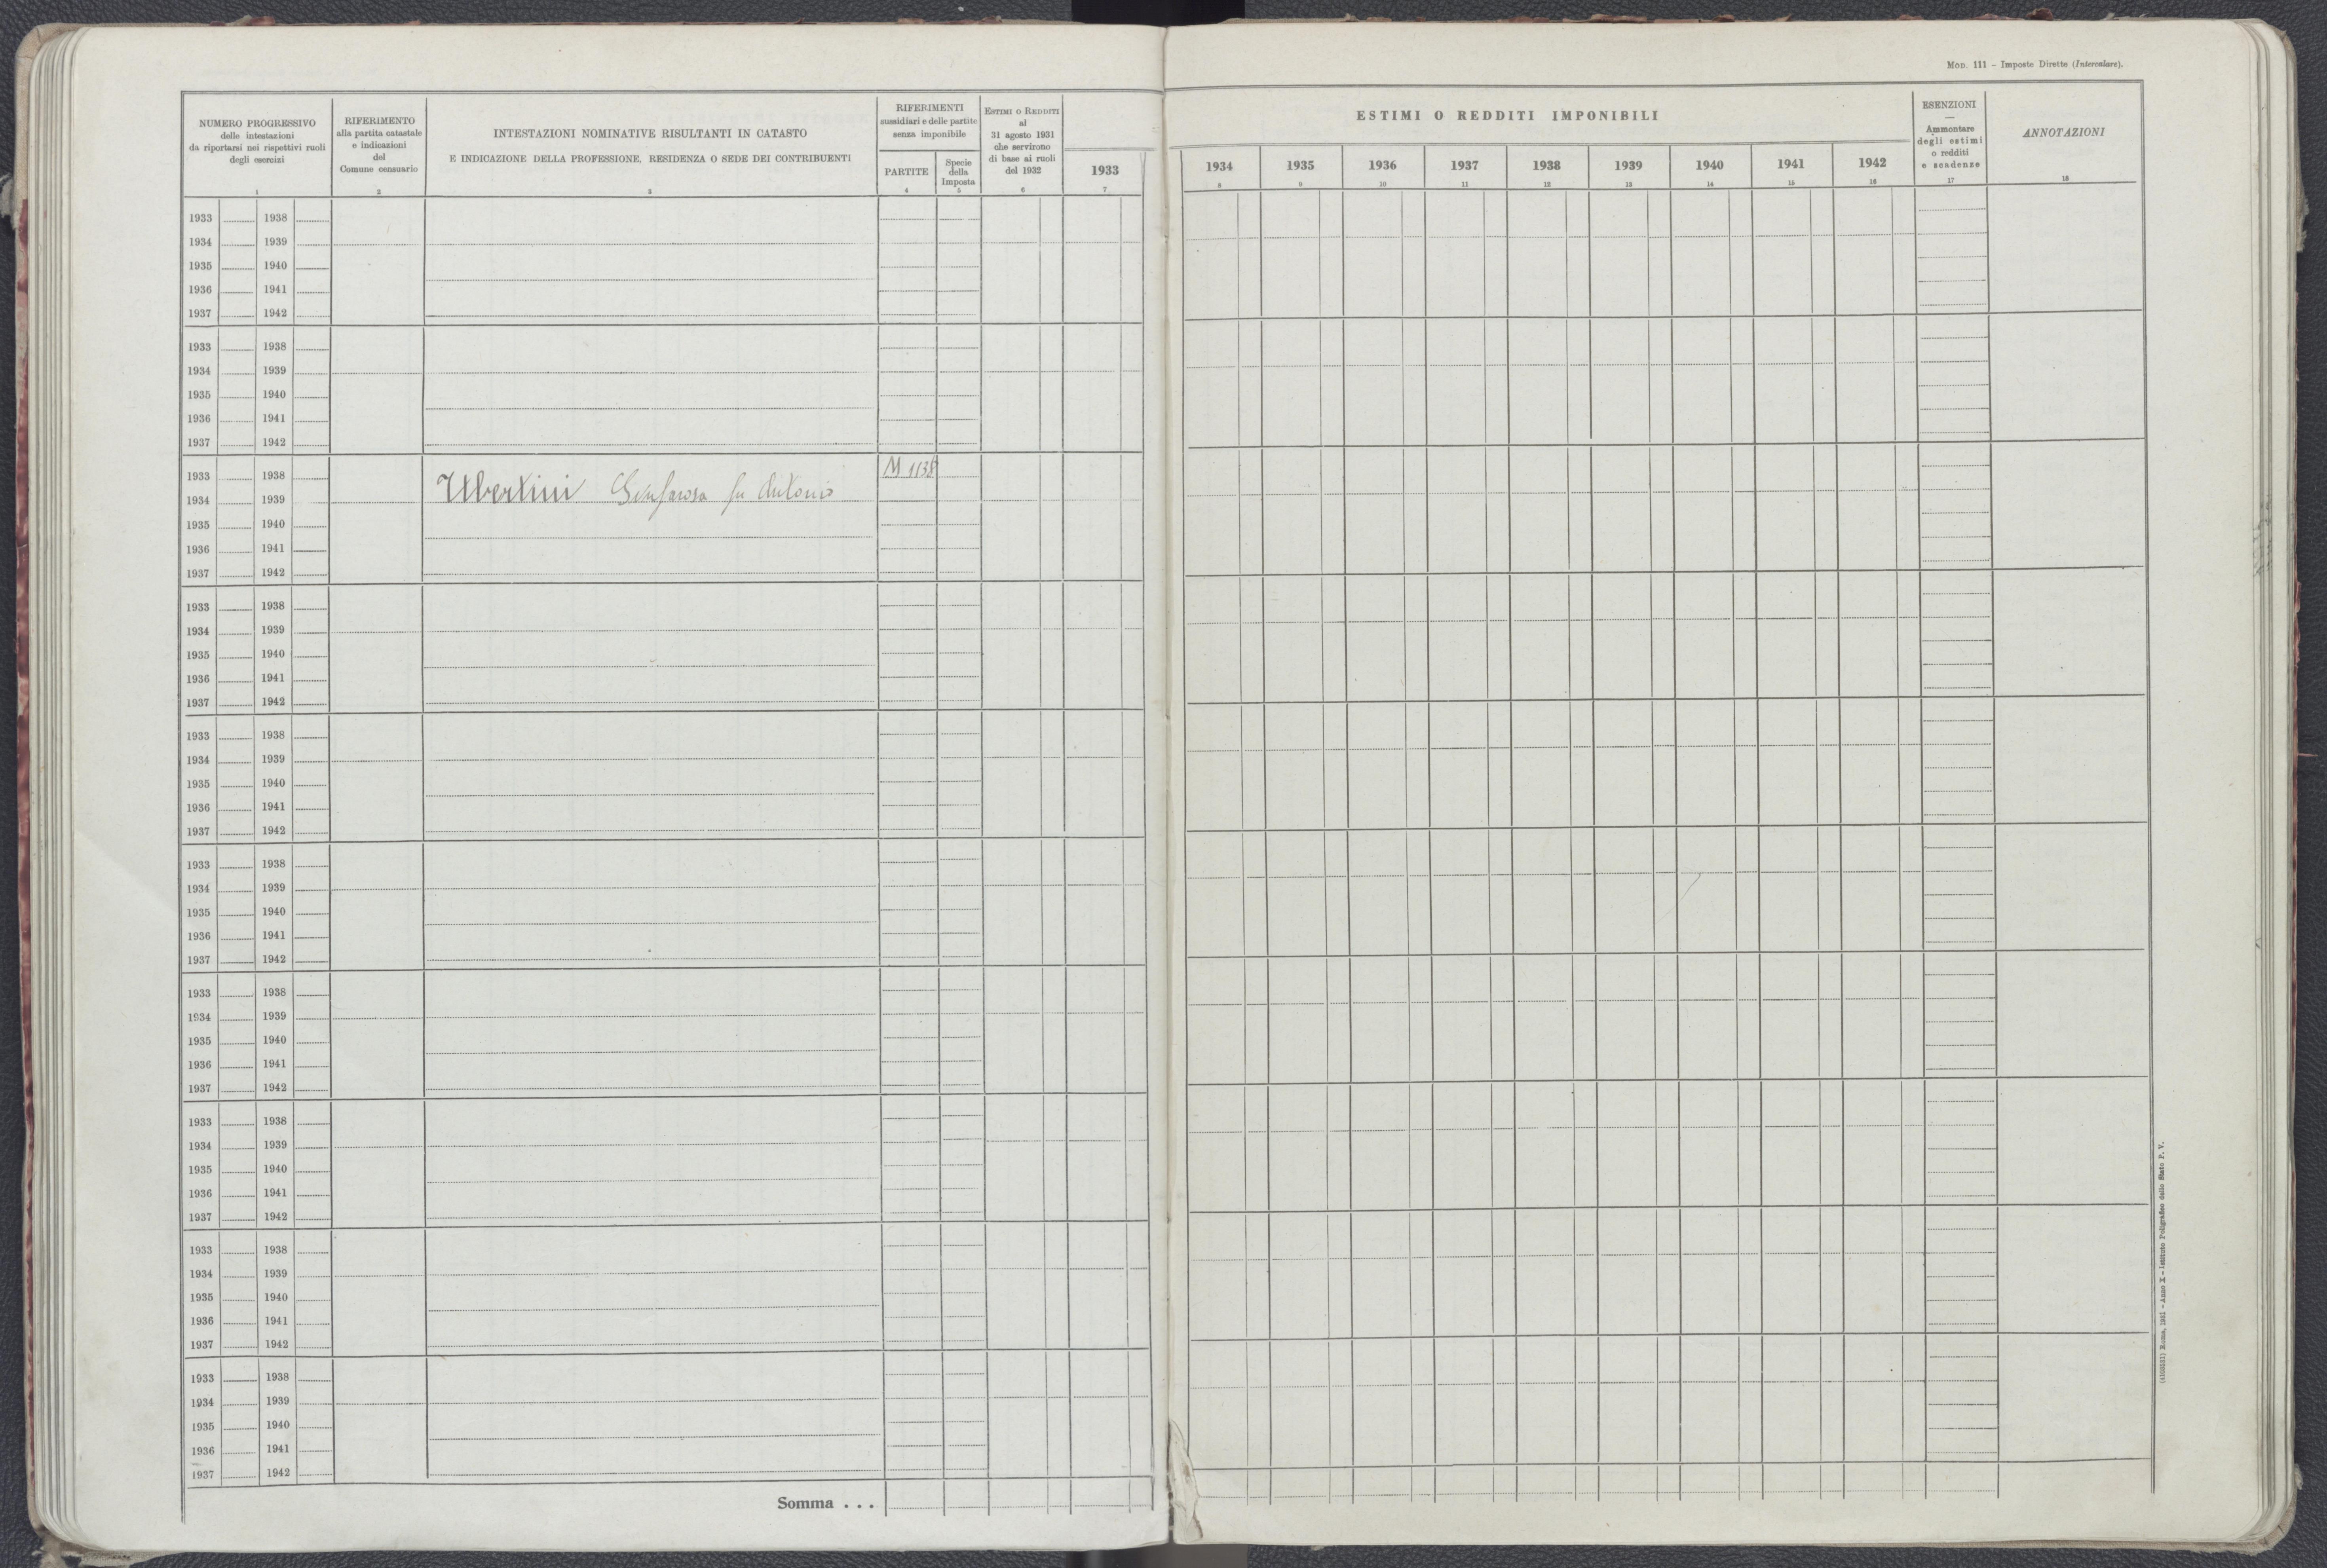 MOD. 111 – Imposte Dirette (Intercalare).
NUMERO PROGRESSIVO
delle intestazioni
da riportarsi nei rispettivi ruoli
degli esercizi
1
RIFERIMENTO
alla partita catastale
e indicazioni
del
Comune censuario
2
INTESTAZIONI NOMINATIVE RISULTANTI IN CATASTO
E INDICAZIONE DELLA PROFESSIONE, RESIDENZA O SEDE DEI CONTRIBUENTI
3
RIFERIMENTI
sussidiari e delle partite
senza imponibile
PARTITE
4
Specie
della
Imposta
5
ESTIMI O REDDITI
al
31 agosto 1931
che servirono
di base ai ruoli
del 1932
6
1933
7
ESTIMI O REDDITI IMPONIBILI
1934 1935 1936 1937 1938 1939 1940 1941 1942
8 9 10 11 12 13 14 15 16
ESENZIONI
—
Ammontare
degli estimi
o redditi
e scadenze
17
ANNOTAZIONI
18
1933 1938
1934 1939
1935 1940
1936 1941
1937 1942
1933 1938
1934 1939
1935 1940
1936 1941
1937 1942
1933 1938 M 1138
1934 1939 Ubertini Sinforosa fu Antonio
1935 1940
1936 1941
1937 1942
1933 1938
1934 1939
1935 1940
1936 1941
1937 1942
1933 1938
1934 1939
1935 1940
1936 1941
1937 1942
1933 1938
1934 1939
1935 1940
1936 1941
1937 1942
1933 1938
1934 1939
1935 1940
1936 1941
1937 1942
1933 1938
1934 1939
1935 1940
1936 1941
1937 1942
1933 1938
1934 1939
1935 1940
1936 1941
1937 1942
1933 1938
1934 1939
1935 1940
1936 1941
1937 1942
Somma . . .
Roma, 1931 – Anno X – Istituto Poligrafico dello Stato P. V.